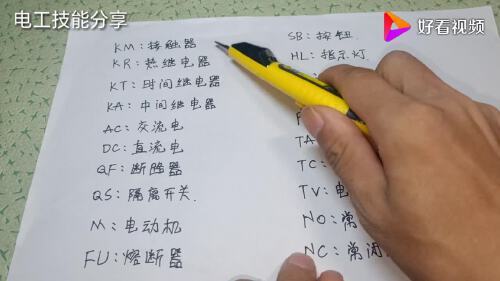 电工技能分享
好看视频
KM:接触器
KR:热继电器
KT:时间继电器
KA:中间继电器
AC:交流电
DC:直流电
QF:断路器
QS:隔离开关.
M:电动机
FU:熔断器
SB:按钮.
HL:指示灯
TA
TC:
TV:电
NO:常
NC:常闭